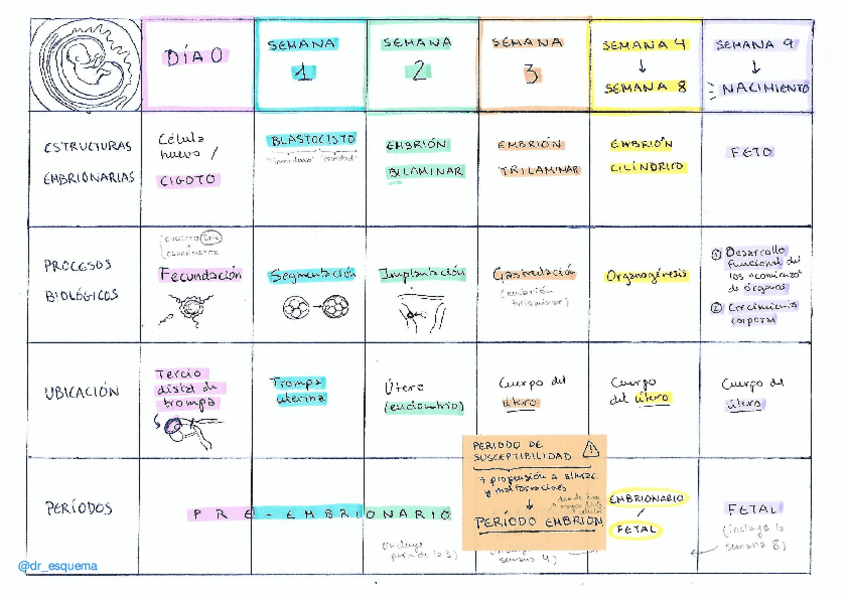 DÍA 0
SEMANA
1
SEMANA
2
SEMANA
3
SEMANA 4
↓
SEMANA 8
SEMANA 9
↓
NACIMIENTO
ESTRUCTURAS
EMBRIONARIAS
Célula
huevo /
CIGOTO
BLASTOCISTO
EMBRIÓN
BILAMINAR
EMBRIÓN
TRILAMINAR
EMBRIÓN
CILÍNDRICO
FETO
PROCESOS
BIOLÓGICOS
Fecundación
Segmentación
Implantación
Gastrulación
(embrión
trilaminar)
Organogénesis
① Desarrollo
funcional de
los "comienzo"
de órganos
② Crecimiento
corporal
UBICACIÓN
Tercio
distal de
trompa
Trompa
uterina
Útero
(endometrio)
Cuerpo del
útero
Cuerpo
del útero
Cuerpo del
útero
PERÍODOS
PRE-EMBRIONARIO
PERIODO DE
SUSCEPTIBILIDAD
+ propensión a
y malformaciones
↓
PERÍODO EMBRION
semana 4)
EMBRIONARIO
/
FETAL
FETAL
(incluye la
semana 8)
@dr_esquema